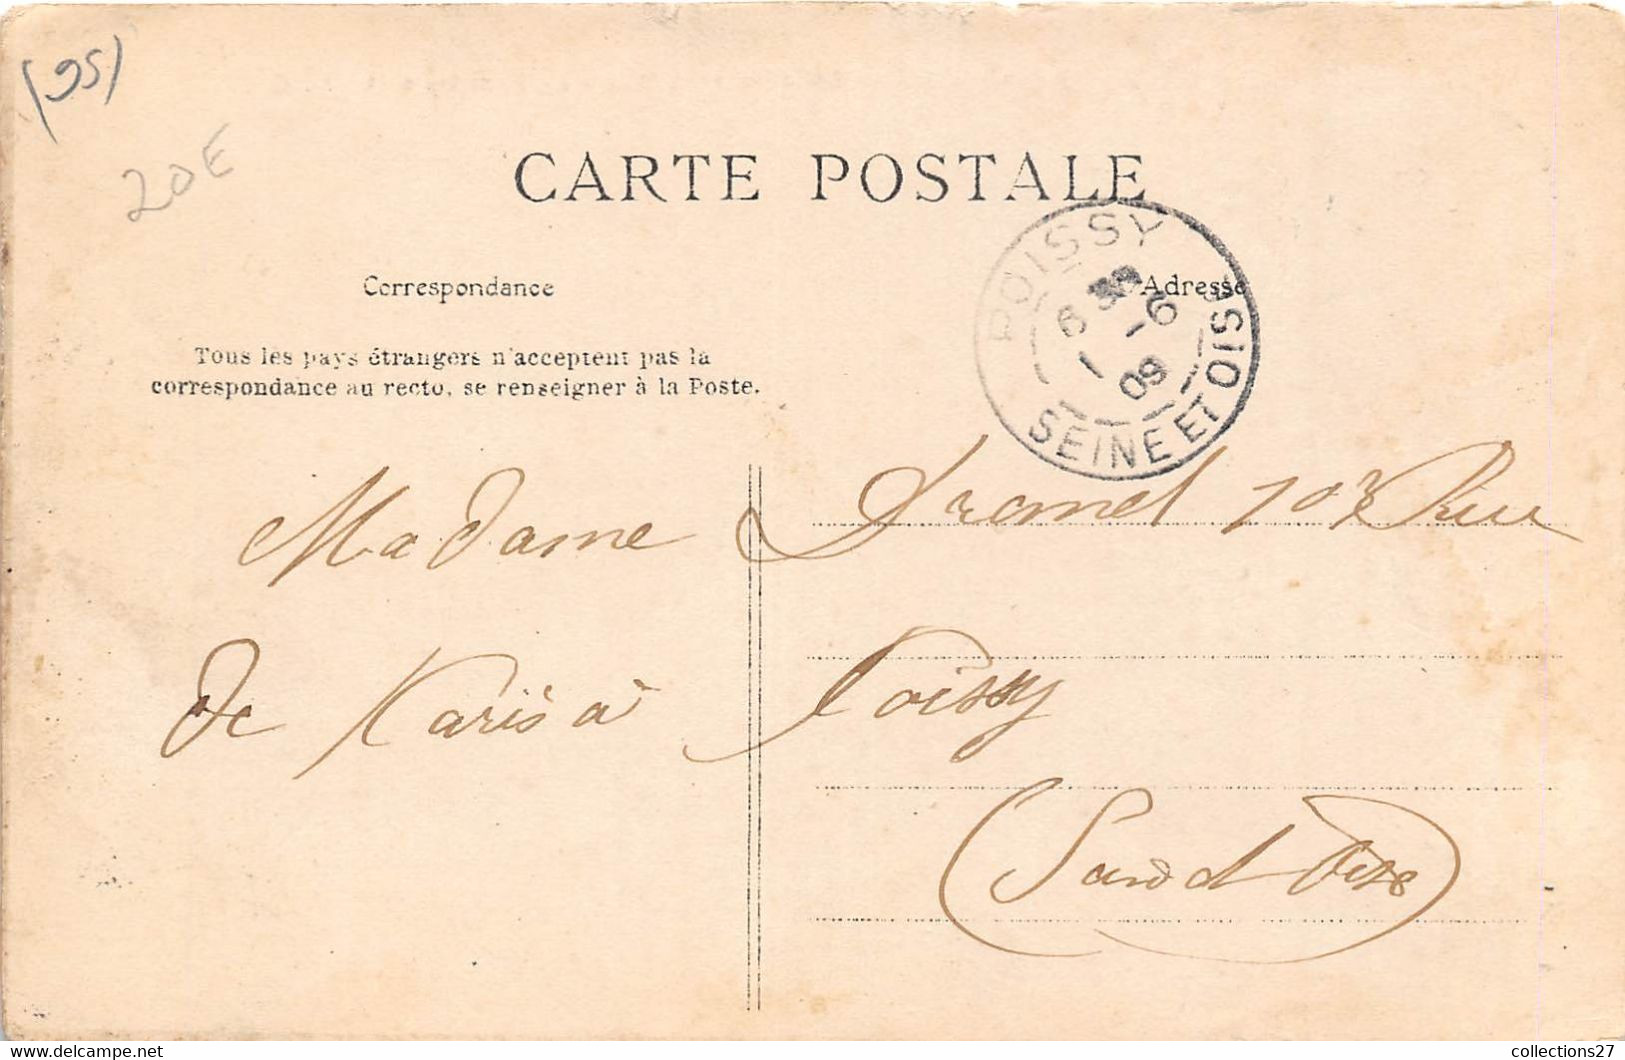 (95)
20E
CARTE POSTALE
POISSY
6 30
1 - 6
09
SEINE ET OISE
Correspondance
Adresse
Tous les pays étrangers n'acceptent pas la
correspondance au recto, se renseigner à la Poste.
Madame Dramel 103 Rue
de Paris à Poissy
(Seine et Oise
collections27